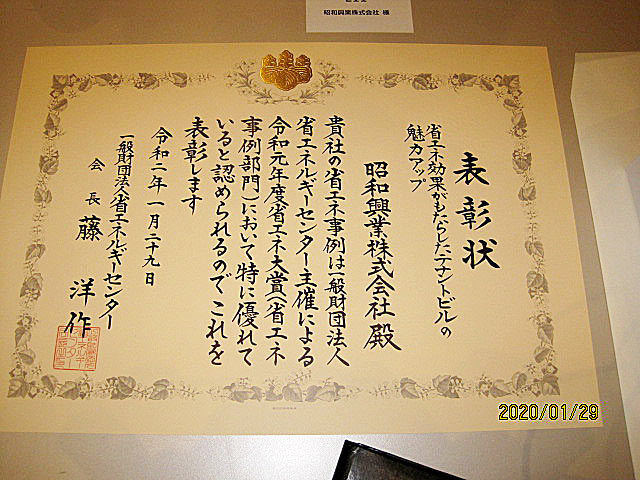 昭和興業株式会社 様
表彰状
省エネ効果がもたらしたテナントビルの
魅力アップ
昭和興業株式会社 殿
貴社の省エネ事例は一般財団法人
省エネルギーセンター主催による
令和元年度省エネ大賞(省エネ
事例部門)において特に優れて
いると認められるのでこれを
表彰します
令和二年一月二十九日
一般財団法人省エネルギーセンター
会長 藤 洋作
2020/01/29